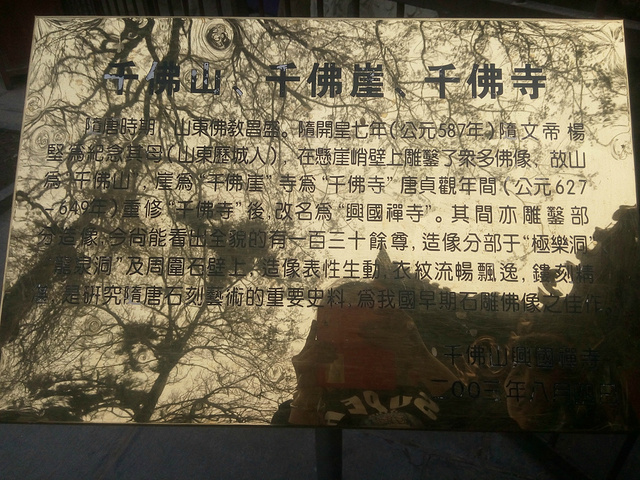 千佛山、千佛崖、千佛寺
隋唐時期，山東佛教昌盛。隋開皇七年(公元587年)隋文帝楊
堅爲紀念其母(山東歷城人)，在懸崖峭壁上雕鑿了衆多佛像、故山
爲“千佛山”，崖爲“千佛崖”寺爲“千佛寺”唐貞觀年間(公元627
-649年)重修“千佛寺”後，改名爲“興國禪寺”。其間亦雕鑿部
分造像，今尚能看出全貌的有一百三十餘尊，造像分部于“極樂洞”
龍泉洞”及周圍石壁上，造像表性生動，衣紋流暢飄逸，鏤刻精
是研究隋唐石刻藝術的重要史料，爲我國早期石雕佛像之佳作
千佛山興國禪寺
年八月